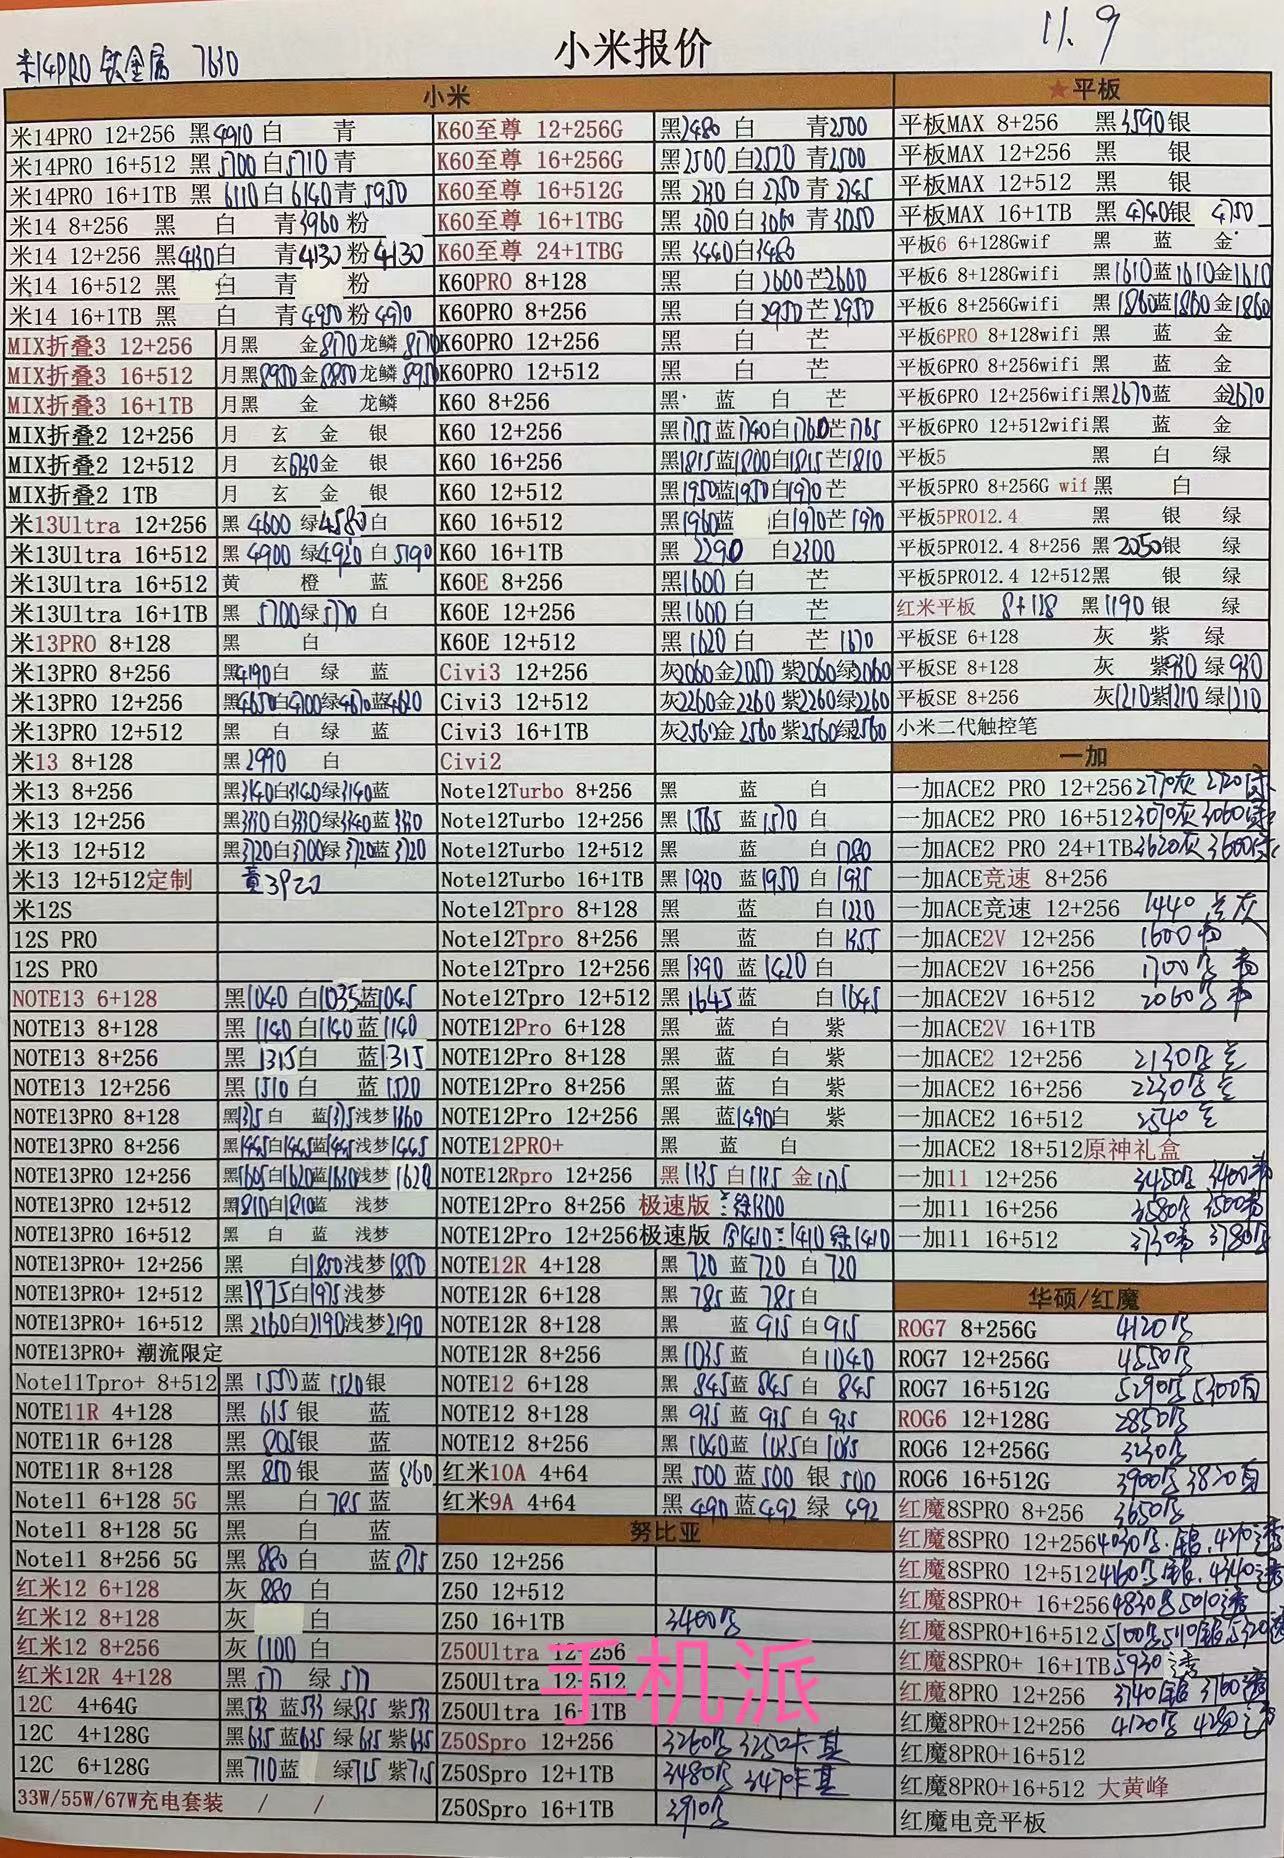 小米报价
11.9
米14PRO 钛金属 7630
小米
米14PRO 12+256 黑4910 白 青
米14PRO 16+512 黑5700白5710青
米14PRO 16+1TB 黑 6110白6140青5950
米14 8+256 黑 白 青3960粉
米14 12+256 黑4130白 青4130粉4130
米14 16+512 黑 白 青 粉
米14 16+1TB 黑 白 青4950粉4970
MIX折叠3 12+256 月黑 金8770龙鳞
MIX折叠3 16+512 月黑8950金8850龙鳞8950
MIX折叠3 16+1TB 月黑 金 龙鳞
MIX折叠2 12+256 月 玄 金 银
MIX折叠2 12+512 月 玄 金 银
MIX折叠2 1TB 月 玄 金 银
米13Ultra 12+256 黑4600绿4580白
米13Ultra 16+512 黑4900绿4920白5190
米13Ultra 16+512 黄 橙 蓝
米13Ultra 16+1TB 黑5700绿5770白
米13PRO 8+128 黑 白
米13PRO 8+256 黑4190白 绿 蓝
米13PRO 12+256 黑4650白4700绿4670蓝4620
米13PRO 12+512 黑 白 绿 蓝
米13 8+128 黑2990 白
米13 8+256 黑3140白3140绿3140蓝
米13 12+256 黑3330白3330绿3340蓝3330
米13 12+512 黑3720白3700绿3720蓝3720
米13 12+512定制 黄
米12S
12S PRO
12S PRO
NOTE13 6+128 黑1040白1035蓝1045
NOTE13 8+128 黑1140白1140蓝1140
NOTE13 8+256 黑1315白 蓝1315
NOTE13 12+256 黑1510白 蓝1520
NOTE13PRO 8+128 黑1375白 蓝1375浅梦1360
NOTE13PRO 8+256 黑1445白1445蓝1445浅梦1445
NOTE13PRO 12+256 黑1605白1620蓝1630浅梦1620
NOTE13PRO 12+512 黑1810白1810蓝 浅梦
NOTE13PRO 16+512 黑 白 蓝 浅梦
NOTE13PRO+ 12+256 黑 白1850浅梦1850
NOTE13PRO+ 12+512 黑1975白1975浅梦
NOTE13PRO+ 16+512 黑2160白2190浅梦2190
NOTE13PRO+ 潮流限定
Note11Tpro+ 8+512 黑1550蓝1520银
NOTE11R 4+128 黑615银 蓝
NOTE11R 6+128 黑805银 蓝
NOTE11R 8+128 黑850银 蓝860
Note11 6+128 5G 黑 白785蓝
Note11 8+128 5G 黑 白 蓝
Note11 8+256 5G 黑880白 蓝875
红米12 6+128 灰880白
红米12 8+128 灰 白
红米12 8+256 灰1100白
红米12R 4+128 黑577绿577
12C 4+64G 黑533蓝533绿535紫533
12C 4+128G 黑635蓝635绿635紫635
12C 6+128G 黑710蓝 绿715紫715
33W/55W/67W充电套装 / /
K60至尊 12+256G 黑2480白 青2500
K60至尊 16+256G 黑2500白2520青2500
K60至尊 16+512G 黑2730白2750青2745
K60至尊 16+1TBG 黑3070白3060青3050
K60至尊 24+1TBG 黑3440白3480
K60PRO 8+128 黑 白2600芒2600
K60PRO 8+256 黑 白2950芒2950
K60PRO 12+256 黑 白 芒
K60PRO 12+512 黑 白 芒
K60 8+256 黑 蓝 白 芒
K60 12+256 黑1755蓝1740白1760芒1765
K60 16+256 黑1815蓝1800白1815芒1810
K60 12+512 黑1950蓝1950白1970芒
K60 16+512 黑1960蓝 白1970芒1970
K60 16+1TB 黑2290白2300
K60E 8+256 黑1600白 芒
K60E 12+256 黑1600白 芒
K60E 12+512 黑1620白 芒1670
Civi3 12+256 灰2060金2050紫2060绿2060
Civi3 12+512 灰2260金2260紫2260绿2260
Civi3 16+1TB 灰2560金2560紫2560绿2560
Civi2
Note12Turbo 8+256 黑 蓝 白
Note12Turbo 12+256 黑1565蓝1570白
Note12Turbo 12+512 黑 蓝 白1780
Note12Turbo 16+1TB 黑1930蓝1950白1935
Note12Tpro 8+128 黑 蓝 白1220
Note12Tpro 8+256 黑 蓝 白1355
Note12Tpro 12+256 黑1390蓝1420白
Note12Tpro 12+512 黑1645蓝 白1645
NOTE12Pro 6+128 黑 蓝 白 紫
NOTE12Pro 8+128 黑 蓝 白 紫
NOTE12Pro 8+256 黑 蓝 白 紫
NOTE12Pro 12+256 黑 蓝1490白 紫
NOTE12PRO+ 黑 蓝 白
NOTE12Rpro 12+256 黑1135白1135金1175
NOTE12Pro 8+256 极速版 绿1300
NOTE12Pro 12+256极速版 1410 1410绿1410
NOTE12R 4+128 黑720蓝720白720
NOTE12R 6+128 黑785蓝785白
NOTE12R 8+128 黑 蓝915白915
NOTE12R 8+256 黑1035蓝 白1040
NOTE12 6+128 黑845蓝845白845
NOTE12 8+128 黑935蓝935白935
NOTE12 8+256 黑1040蓝1035白1035
红米10A 4+64 黑500蓝500银500
红米9A 4+64 黑490蓝492绿492
努比亚
Z50 12+256
Z50 12+512
Z50 16+1TB 3400
Z50Ultra 12+256
Z50Ultra 12+512
Z50Ultra 16+1TB
Z50Spro 12+256 3260 3250卡其
Z50Spro 12+1TB 3480 3470卡其
Z50Spro 16+1TB 3910
★平板
平板MAX 8+256 黑3590银
平板MAX 12+256 黑 银
平板MAX 12+512 黑 银
平板MAX 16+1TB 黑4740银4750
平板6 6+128Gwif 黑 蓝 金
平板6 8+128Gwifi 黑1610蓝1610金1610
平板6 8+256Gwifi 黑1860蓝1860金1860
平板6PRO 8+128wifi 黑 蓝 金
平板6PRO 8+256wifi 黑 蓝 金
平板6PRO 12+256wifi黑2670蓝 金2670
平板6PRO 12+512wifi黑 蓝 金
平板5 黑 白 绿
平板5PRO 8+256G wif黑 白
平板5PRO12.4 黑 银 绿
平板5PRO12.4 8+256 黑2050银 绿
平板5PRO12.4 12+512黑 银 绿
红米平板 8+128 黑1190银 绿
平板SE 6+128 灰 紫 绿
平板SE 8+128 灰 紫930绿930
平板SE 8+256 灰1210紫1210绿1210
小米二代触控笔
一加
一加ACE2 PRO 12+256 2770灰 2720
一加ACE2 PRO 16+512 3070灰 3060
一加ACE2 PRO 24+1TB 3620灰 3600
一加ACE竞速 8+256
一加ACE竞速 12+256 1440 灰
一加ACE2V 12+256 1600
一加ACE2V 16+256 1700
一加ACE2V 16+512 2060
一加ACE2V 16+1TB
一加ACE2 12+256 2130
一加ACE2 16+256 2230
一加ACE2 16+512 2540
一加ACE2 18+512原神礼盒
一加11 12+256 3450 3400
一加11 16+256 3580 3500
一加11 16+512 3730 3780
华硕/红魔
ROG7 8+256G 4120
ROG7 12+256G 4550
ROG7 16+512G 5290 5300
ROG6 12+128G 2850
ROG6 12+256G 3230
ROG6 16+512G 3900 3820
红魔8SPRO 8+256 3650
红魔8SPRO 12+256 4030
红魔8SPRO 12+512 4160 4340透
红魔8SPRO+ 16+256 4830 5010透
红魔8SPRO+16+512 5100
红魔8SPRO+ 16+1TB 5930透
红魔8PRO 12+256 3740银 3760透
红魔8PRO+12+256 4120
红魔8PRO+16+512
红魔8PRO+16+512 大黄峰
红魔电竞平板
手机派